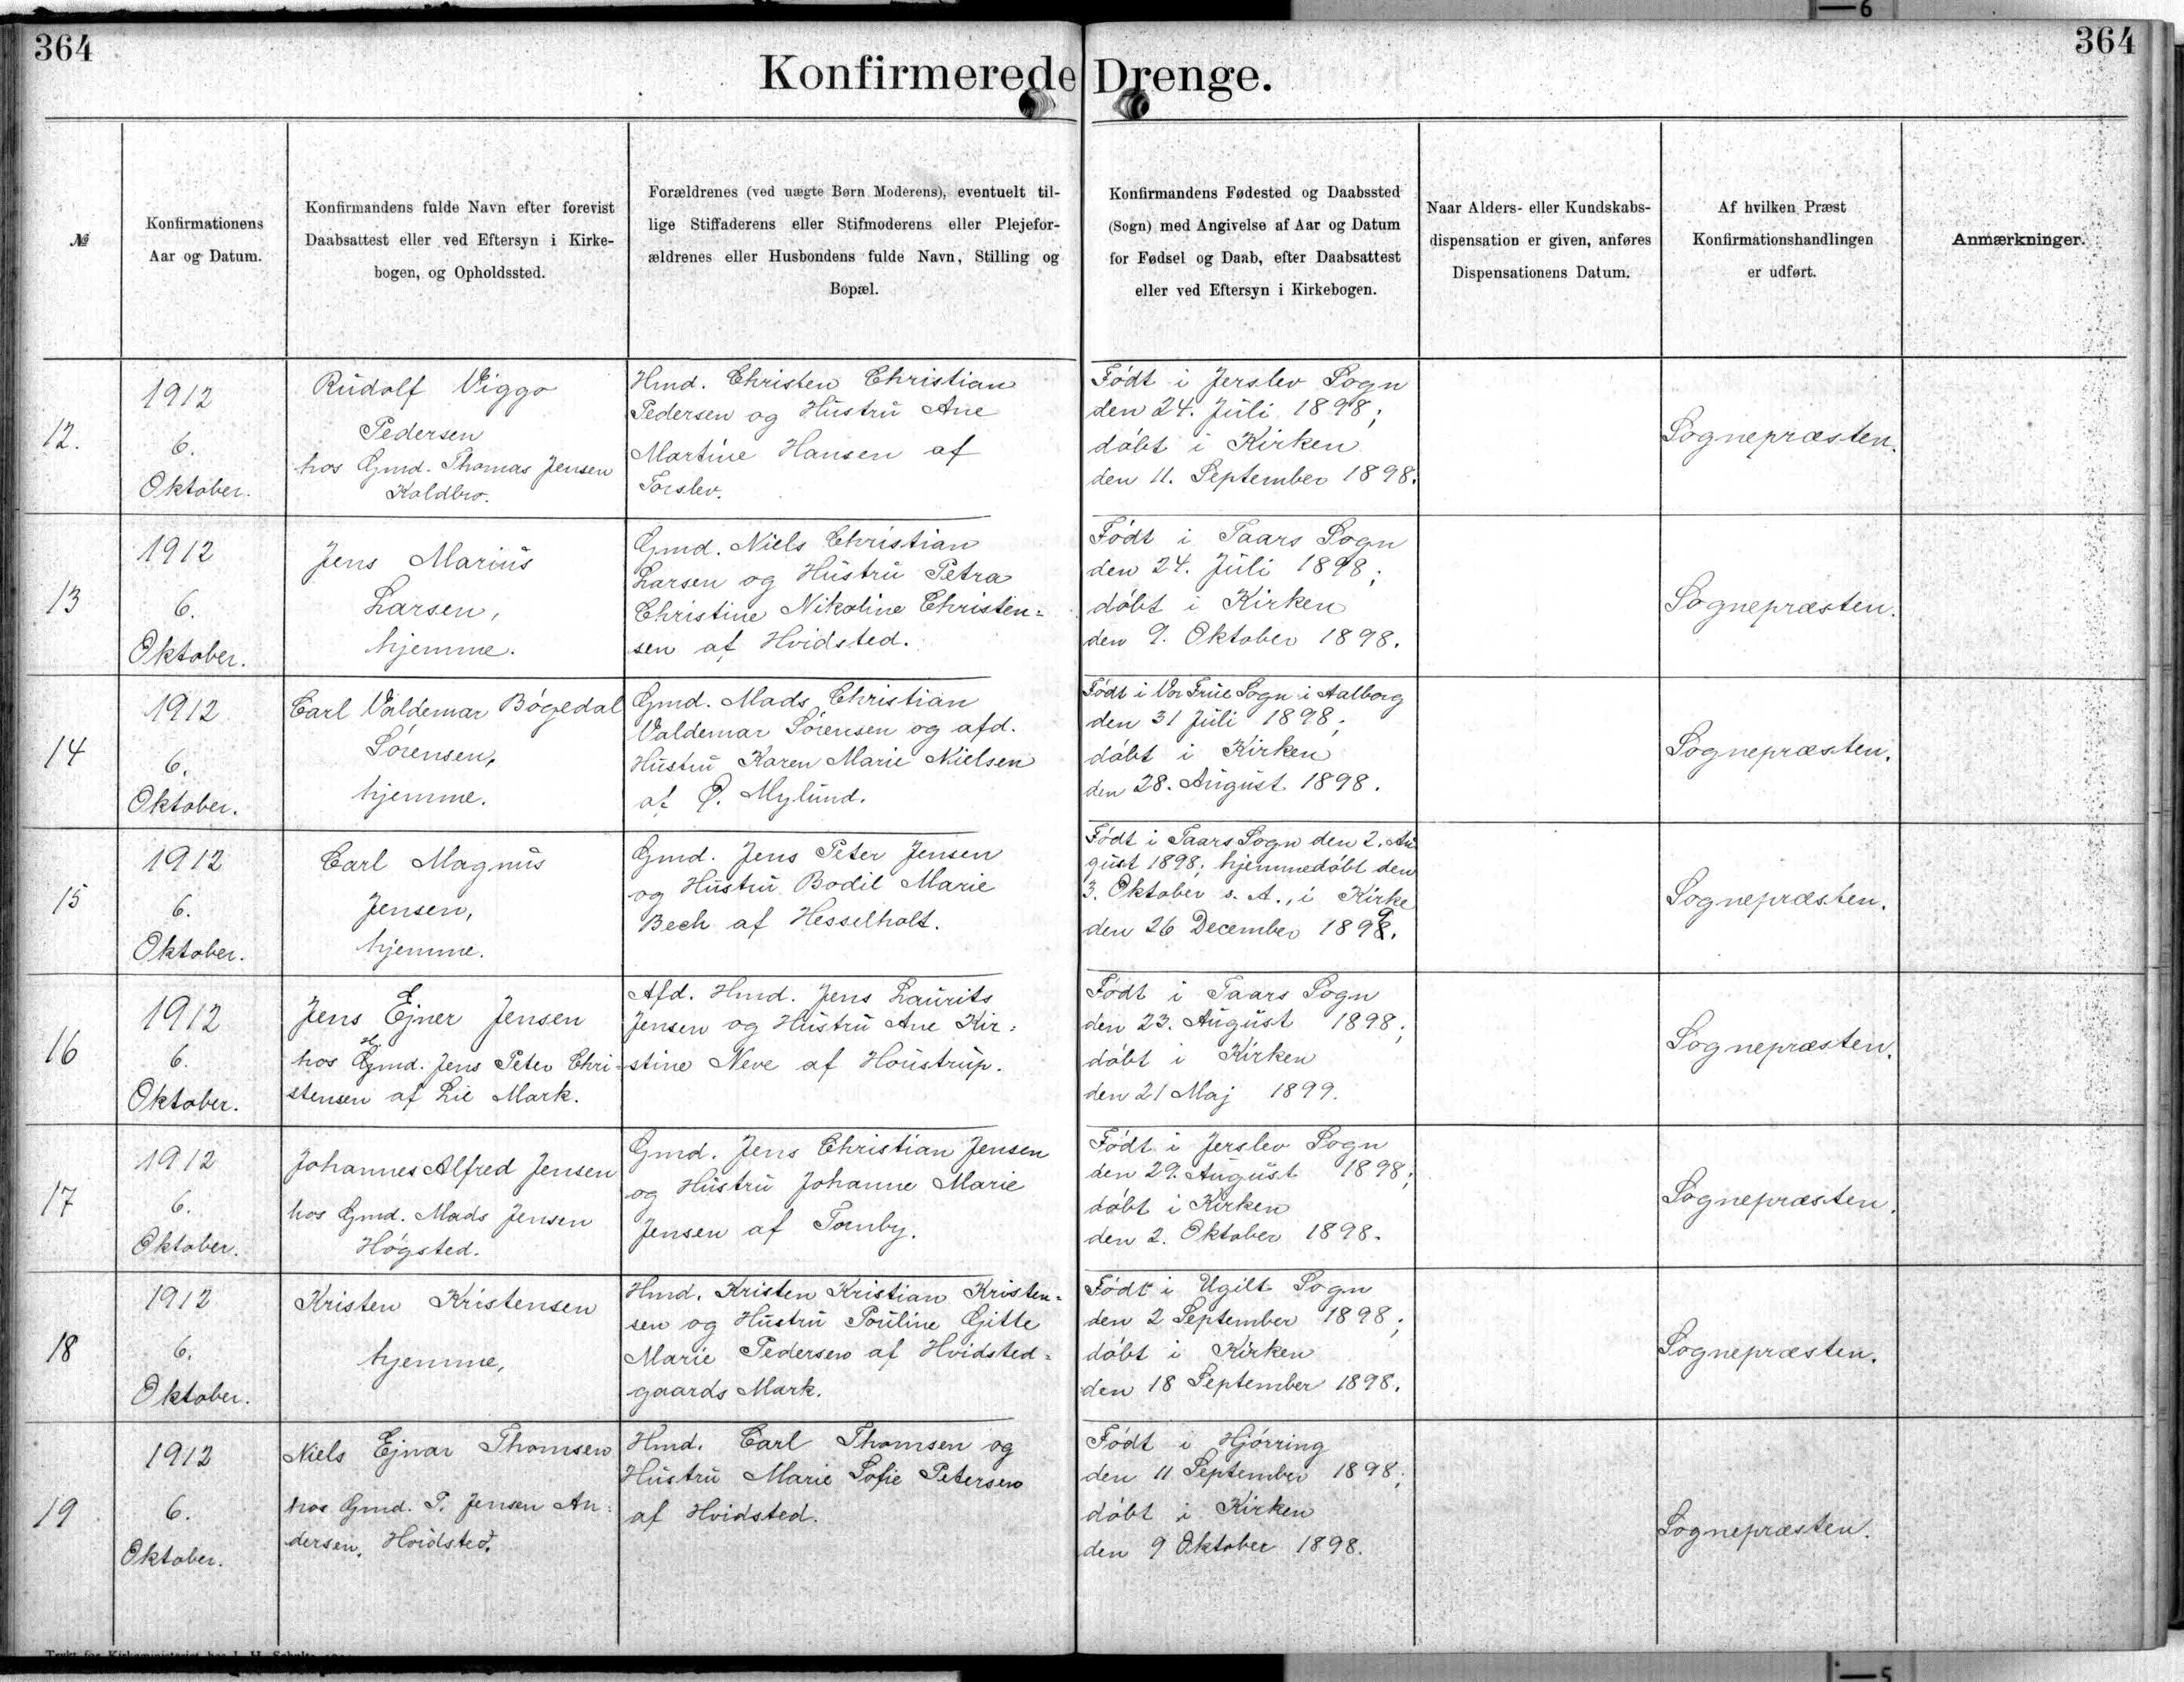 6
364
364
Konfirmerede Drenge.
№
Konfirmationens
Aar og Datum.
Konfirmandens fulde Navn efter forevist
Daabsattest eller ved Eftersyn i Kirke-
bogen, og Opholdssted.
Forældrenes (ved uægte Børn Moderens), eventuelt til-
lige Stiffaderens eller Stifmoderens eller Plejefor-
ældrenes eller Husbondens fulde Navn, Stilling og
Bopæl.
Konfirmandens Fødested og Daabssted
(Sogn) med Angivelse af Aar og Datum
for Fødsel og Daab, efter Daabsattest
eller ved Eftersyn i Kirkebogen.
Naar Alders- eller Kundskabs-
dispensation er given, anføres
Dispensationens Datum.
Af hvilken Præst
Konfirmationshandlingen
er udført.
Anmærkninger.
12.
1912
6.
Oktober.
Rudolf Viggo
Pedersen
hos Gmd. Thomas Jensen
Koldbro.
Hmd. Christen Christian
Pedersen og Hustru Ane
Martine Hansen af
Torslev.
Født i Jerslev Sogn
den 24. Juli 1898;
døbt i Kirken
den 11. September 1898.
Sognepræsten.
13
1912
6.
Oktober.
Jens Marius
Larsen,
hjemme.
Gmd. Niels Christian
Larsen og Hustru Petra
Christine Nikoline Christen=
sen af Hvidsted.
Født i Taars Sogn
den 24. Juli 1898;
døbt i Kirken
den 9. Oktober 1898.
Sognepræsten.
14
1912
6.
Oktober.
Carl Valdemar Bøgedal
Sørensen,
hjemme.
Gmd. Mads Christian
Valdemar Sørensen og afd.
Hustru Karen Marie Nielsen
af Ø. Mylund.
Født i Vor Frue Sogn i Aalborg
den 31 Juli 1898;
døbt i Kirken
den 28. August 1898.
Sognepræsten.
15
1912
6.
Oktober.
Carl Magnus
Jensen,
hjemme.
Gmd. Jens Peter Jensen
og Hustru Bodil Marie
Bech af Hesselholt.
Født i Taars Sogn den 2. Au
gust 1898; hjemmedøbt den
3. Oktober s. A., i Kirke
den 26 December 1899.
Sognepræsten.
16
1912
6.
Oktober.
Jens Ejner Jensen
hos Hmd. Jens Peter Chri=
stensen af Lie Mark.
Afd. Hmd. Jens Laurits
Jensen og Hustru Ane Kir=
stine Neve af Houstrup.
Født i Taars Sogn
den 23. August 1898;
døbt i Kirken
den 21 Maj 1899.
Sognepræsten.
17
1912
6.
Oktober.
Johannes Alfred Jensen
hos Gmd. Mads Jensen
Høgsted.
Gmd. Jens Christian Jensen
og Hustru Johanne Marie
Jensen af Tornby.
Født i Jerslev Sogn
den 29. August 1898;
døbt i Kirken
den 2. Oktober 1898.
Sognepræsten.
18
1912
6.
Oktober.
Kristen Kristensen
hjemme,
Hmd. Kristen Kristian Kristen=
sen og Hustru Pouline Gitte
Marie Pedersen af Hvidsted=
gaards Mark.
Født i Ugilt Sogn
den 2 September 1898;
døbt i Kirken
den 18 September 1898.
Sognepræsten.
19
1912
6.
Oktober.
Niels Ejnar Thomsen
hos Gmd. P. Jensen An=
dersen, Hvidsted.
Hmd. Carl Thomsen og
Hustru Marie Sofie Petersen
af Hvidsted.
Født i Hjørring
den 11 September 1898;
døbt i Kirken
den 9 Oktober 1898.
Sognepræsten.
5